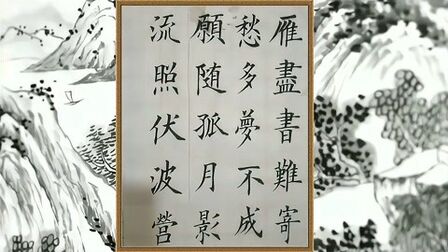 雁盡書難寄
愁多夢不成
願随孤月影
流照伏波營